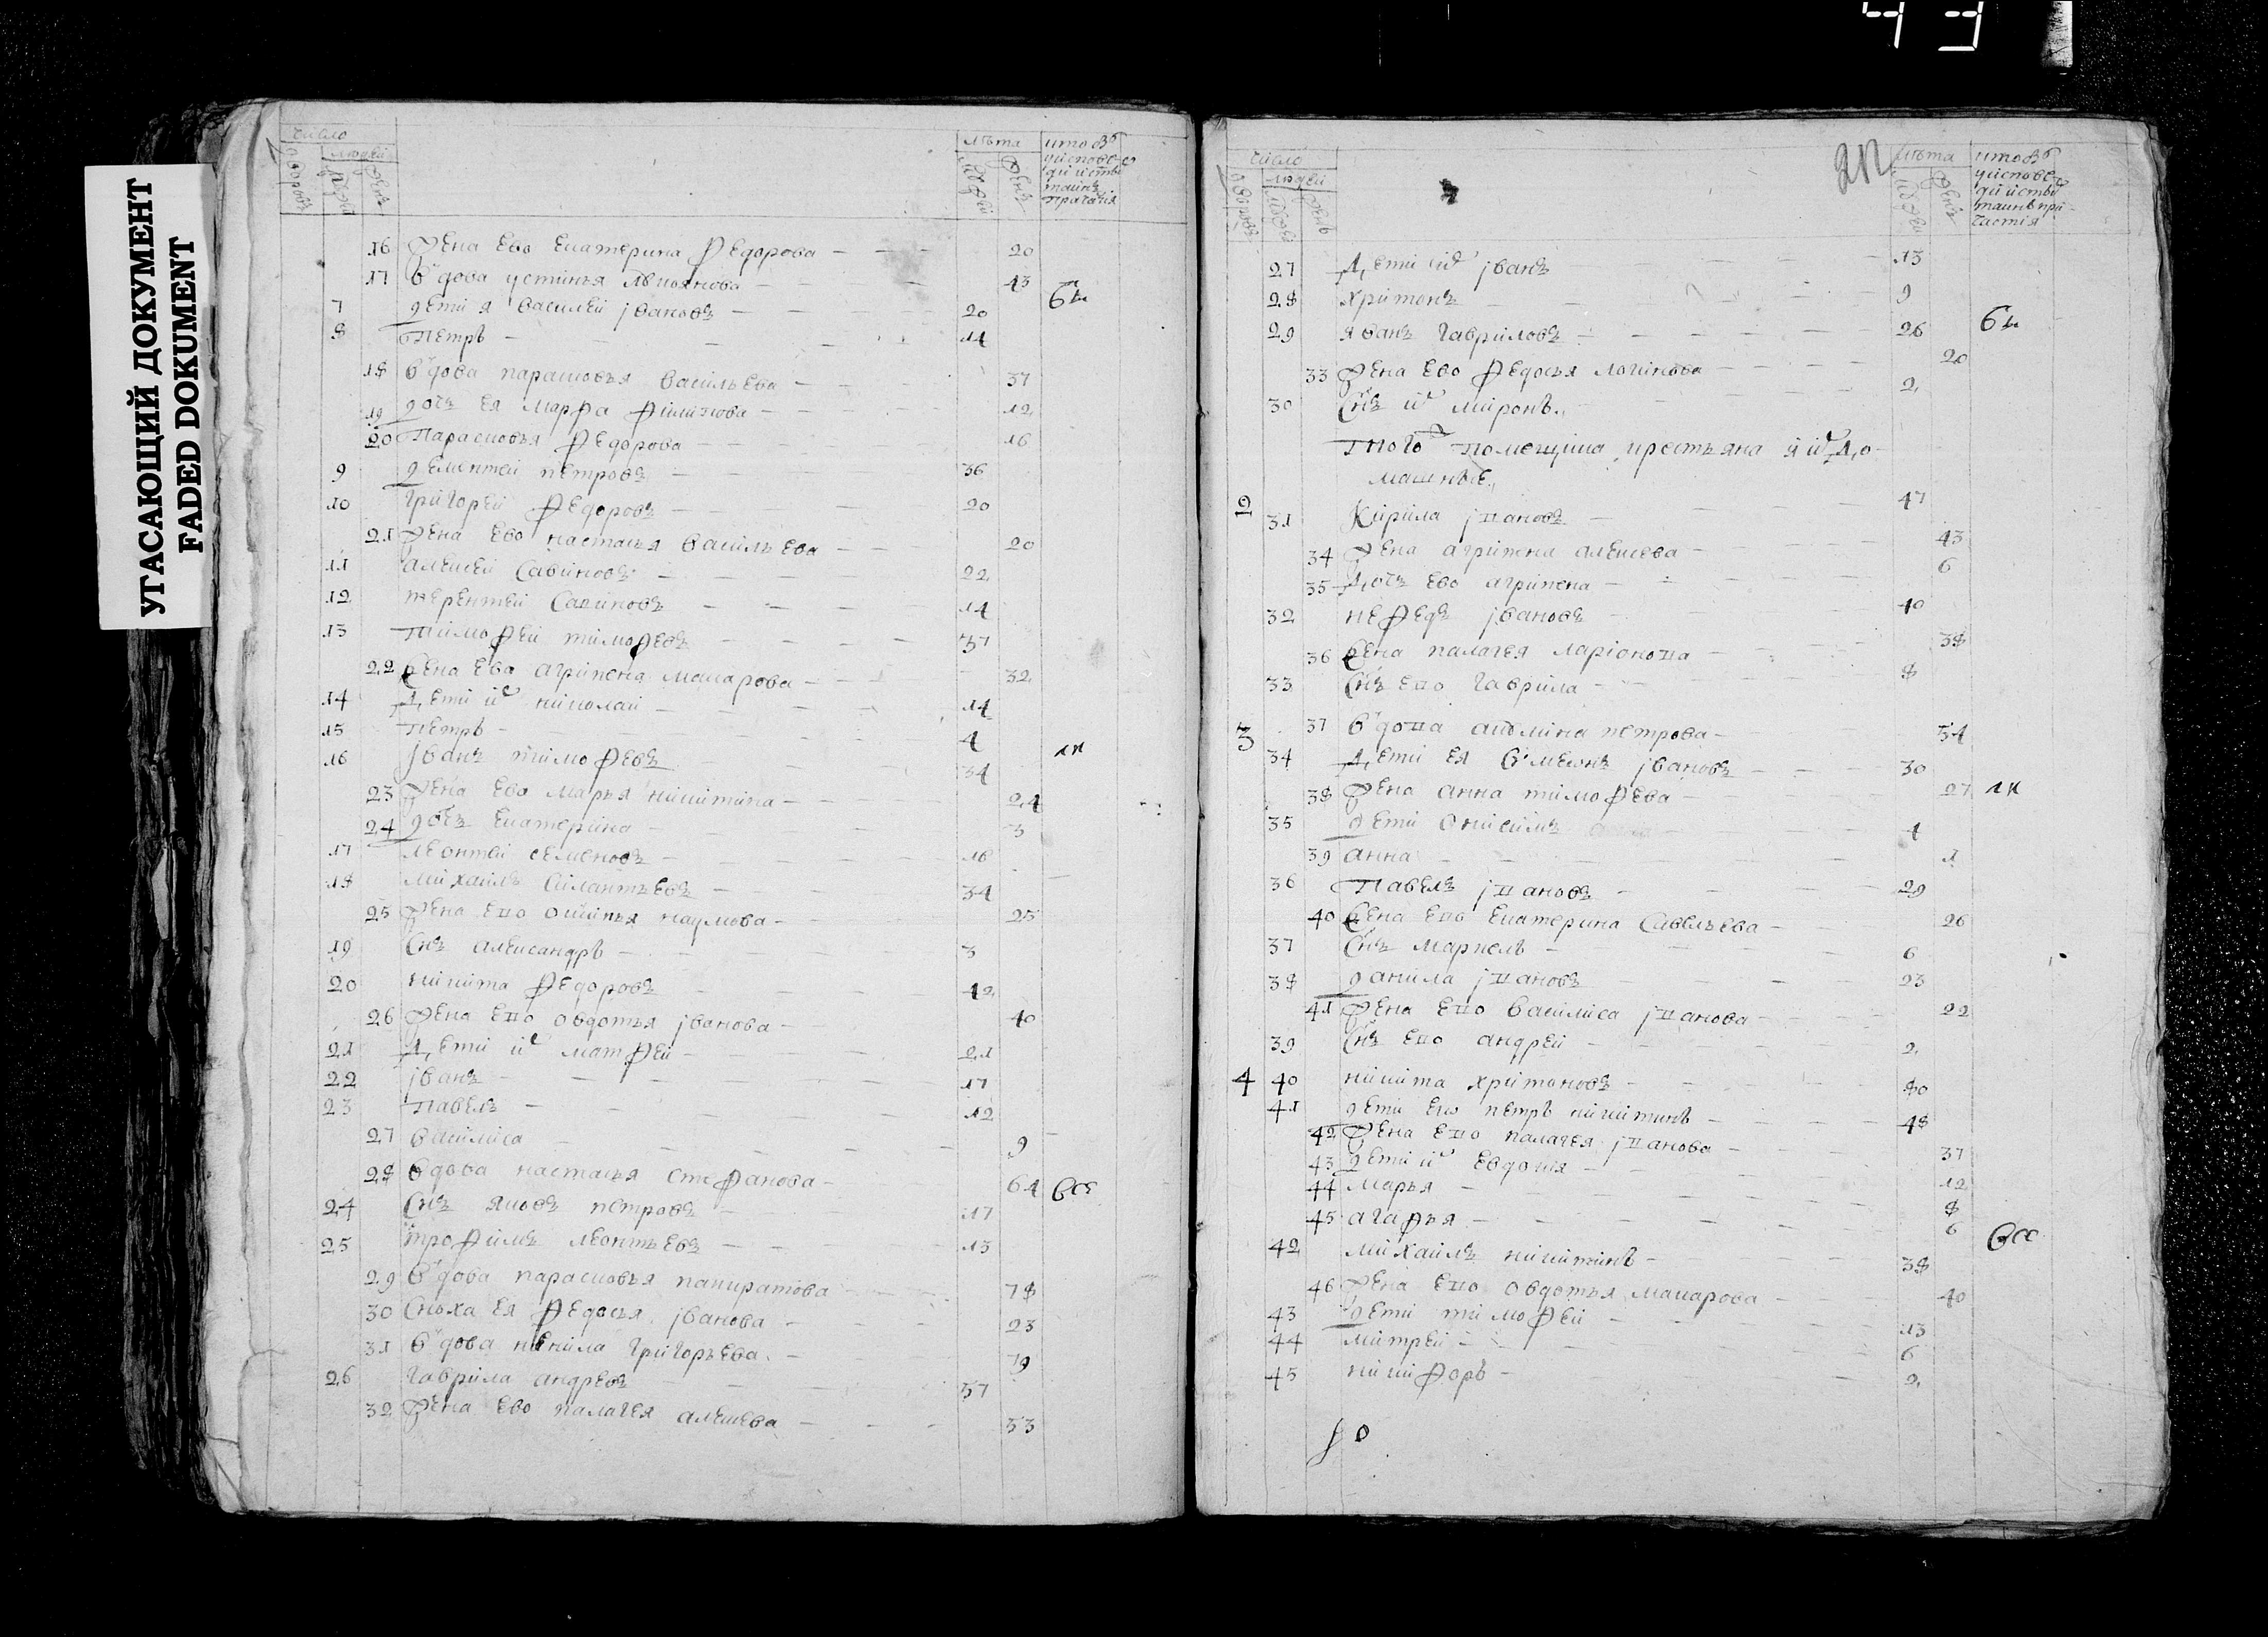 43
УГАСАЮЩИЙ ДОКУМЕНТ
FADED DOKUMENT
число
людей
лѣта
16 жена ево екатерина федорова 20
17 вдова устинья 43
7 дети я василей iвановъ 20 бы
8 петръ 14
18 вдова парасковья васильева 37
19 дочь ея марфа 12
20 парасковья федорова 16
9 дементей петровъ 36
10 григорей федоровъ 20
21 жена ево настасья васильева 20
11 алексей савиновъ 22
12 терентей савиновъ 14
13 тимофей тимофевъ 37
22 жена ево агрипена макарова 32
14 дети их николай 14
15 петръ 4
16 iванъ тимофевъ 34
23 жена ево марья никитина 24
24 дочь екатерина 3
17 леонтей семеновъ 16
18 михаилъ силантьевъ 34
25 жена ево наумова 25
19 снъ александръ 3
20 никита федоровъ 42
26 жена ево овдотья iванова 40
21 дети их матфей 21
22 iванъ 17
23 павелъ 12
27 василиса 9
28 вдова настасья стефанова 64 все
24 снъ яковъ петровъ 17
25 трофимъ леонтьевъ 13
29 вдова парасковья панкратова 78
30 сноха ея федосья iванова 23
31 вдова ненила григорьева 79
26 гаврила андревъ 57
32 жена ево палагея алексева 53
число
людей
лѣта
27 дети их iванъ 13
28 харитонъ 9
29 iванъ гавриловъ 26 бы
33 жена ево федосья логинова 20
30 снъ их миронъ 2
того помещика крестьяна и их до
машные
2 31 кирила iвановъ 47
34 жена агрипена алексева 43
35 дочь ево агрипена 6
32 нефедъ iвановъ 40
36 жена палагея ларiонова 38
33 снъ ево гаврила 8
3 37 вдова акулина петрова 54
34 дети ея семенъ iвановъ 30
38 жена анна тимофева 27
35 дети онисимъ 4
39 анна 1
36 павелъ iвановъ 29
40 жена ево екатерина савельева 26
37 снъ маркелъ 6
38 данила iвановъ 23
41 жена ево василиса iванова 22
39 снъ ево андрей 2
4 40 никита харитоновъ 80
41 дети ево петръ никитинъ 48
42 жена ево палагея iванова 37
43 дети их евдокия 12
44 марья 8
45 агафья 6
42 михаилъ никитинъ 38 все
46 жена ево овдотья макарова 40
43 дети тимофей 13
44 митрей 6
45 никифоръ 2